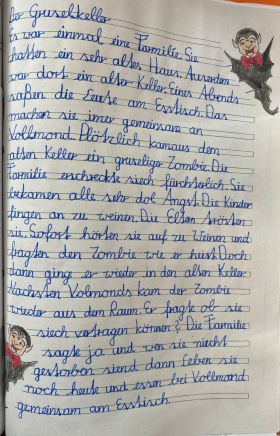 Der Gruselkeller
Es war einmal eine Familie. Sie
hatten ein sehr altes Haus. Auserdem
war dort ein alter Keller. Eines Abends
saßen die Leute am Esstisch. Das
machen sie imer gemeinsam an
Vollmond. Plötzlich kamaus dem
alten Keller ein gruseliger Zombie. Die
Familie erschreckte siech fürchterlich. Sie
bekamen alle sehr dol Angst. Die Kinder
fingen an zu weinen. Die Elten trösten
sie. Sofort hörten sie auf zu Weinen und
fragten den Zombie wie er heist. Doch
dann ging er wieder in den alten Keller.
Nächsten Volmonds kam der Zombie
wieder aus dem Raum. Er fragte ob sie
siech vertragen können? Die Familie
sagte ja und wen sie niecht
gestorben siend dann leben sie
noch heute und essen bei Vollmond
gemeinsam am Esstisch.